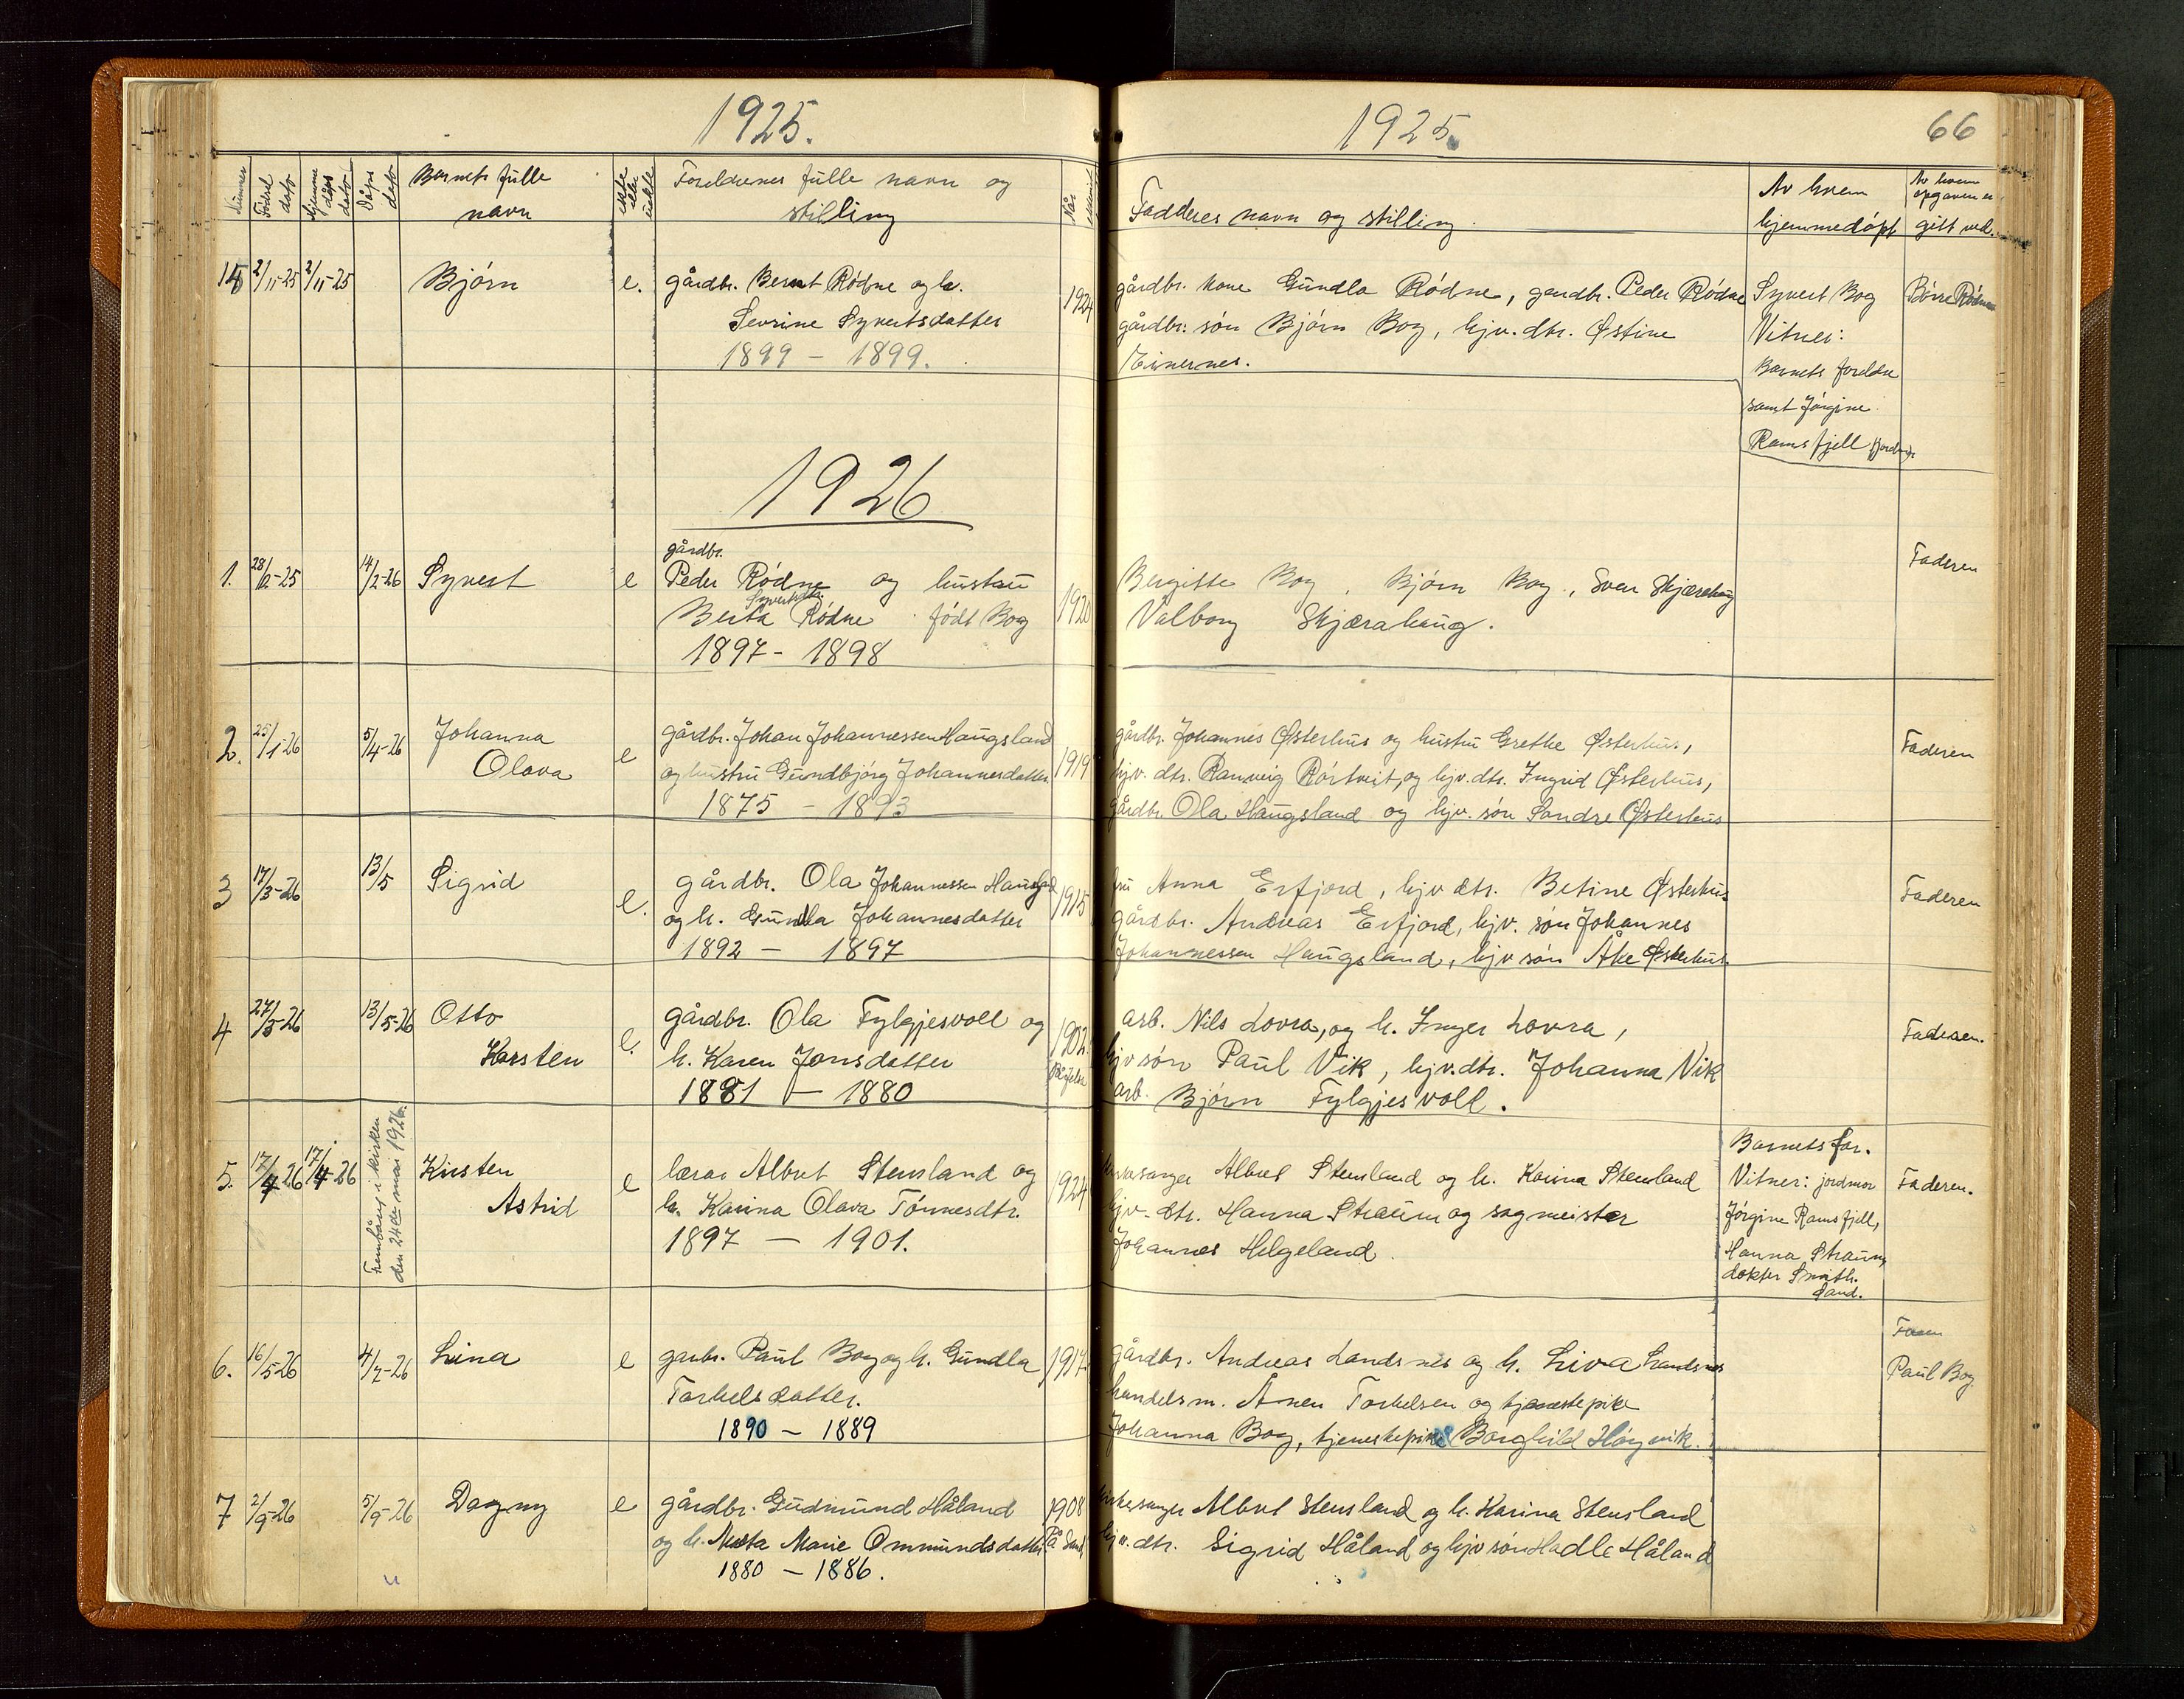 1925.
1925.
66
Nummer
Fødsel dato
Hjemme dåps dato
Dåps dato
Barnets fulle navn
ekte eller uekte
Foreldrenes fulle navn og stilling
Når
Fadderes navn og stilling.
Av hvem hjemmedøpt
Av hvem opgaven er gitt ved.
15 2/11-25 2/11-25 Bjørn e. gårdbr. Bernt Rødne og h. 1924 gårdbr. kone Gundla Rødne, gardbr. Peder Rødne Syvert Bog Børre Rødne
Sevrine Syvertsdatter gårdbr. søn Bjørn Bog, hjv. dtr. Østine Vitner:
1899 - 1899. Barnets foreldre
samt Jørgine
Ramsfjell
1926
gårdbr.
1. 28/12-25 14/2-26 Syvert e Peder Rødne og hustru 1920 Bergitte Bog, Bjørn Bog, Sven Skjærahaug Faderen
Berta Syvertsdtr. Rødne født Bog Valborg Skjærahaug.
1897 - 1898
2. 25/1-26 5/4-26 Johanna e gårdbr. Johan Johannessen Haugsland 1919 gårdbr. Johannes Østerhus og hustru Grethe Østerhus, Faderen
Olava og hustru Gundbjørg Johannesdatter hjv. dtr. Ranveig Rørtveit, og hjv. dtr. Ingrid Østerhus,
1875 - 1893 gårdbr. Ola Haugsland og hjv. søn Sondre Østerhus
3 17/3-26 13/5 Sigrid e. gårdbr. Ola Johannessen Haugsland 1915 fru Anna Erfjord, hjv dtr. Betine Østerhus Faderen
og h. Gundla Johannesdatter gårdbr. Andreas Erfjord, hjv. søn Johannes
1892 - 1897 Johannessen Haugsland, hjv søn Åke Østerhus.
4 27/3-26 13/5-26 Otto e. gårdbr. Ola Fylgjesvoll og 1902 arb. Nils Lovra, og h. Inger Lovra, Faderen.
Karsten h. Karen Jonsdatter hjv søn Paul Vik, hjv. dtr. Johanna Vik
1881 - 1880 arb. Bjørn Fylgjesvoll.
5. 17/4-26 17/4-26 Frembåret i kirken den 24de mai 1926. Kirsten e lærar Albret Stensland og 1924 kirkesanger Albret Stensland og h. Karina Stensland Barnets far. Faderen.
Astrid h. Karina Olava Tønnesdtr. hjv. dtr. Hanna Straum og sagmeister Vitner: jordmor
1897 - 1901. Johannes Helgeland. Jørgine Ramsfjell,
Hanna Straum,
doktor Smith.
Sand.
6. 16/5-26 4/7-26 Lina e garbr. Paul Bog og h. Gundla 1917 gårdbr. Andreas Landsnes og h. Liva Landsnes Faren
Torkelsdatter. handelsm. Ånen Torkelsen og tjenestepike Paul Bog
1890 - 1889 Johanna Bog, tjenestepike Borghild Høgvik.
7 2/9-26 5/9-26 Dagny e gårdbr. Gudmund Håland 1908 kirkesanger Albret Stensland og h. Karina Stensland
og h. Marta Marie Ommundsdatter På Sand hjv. dtr. Sigrid Håland og hjv søn Hadle Håland
1880 - 1886.